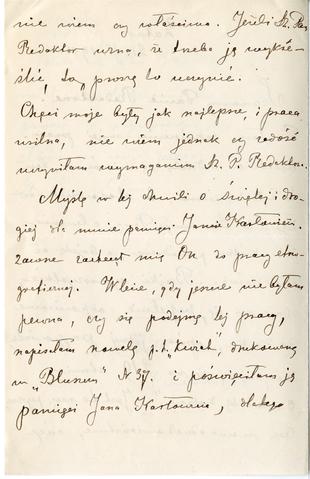 nie wiem czy właściwa. Jeżeli Sz. Pan
Redaktor uzna, że trzeba ją wykre-
ślić, to proszę to uczynić.
Chęci moje były jak najlepsze, i praca
usilna, nie wiem jednak czy zadość
uczyniłam wymaganiom Sz. P. Redaktora.
Myślę w tej chwili o świętej i dro-
giej dla mnie pamięci Janie Karłowiczu.
Zawsze zachęcał mię On do pracy etno-
graficznej. W lecie, gdy jeszcze nie byłam
pewna, czy się podejmę tej pracy,
napisałam nowelę p. t. „Kwiat", drukowaną
w „Bluszczu" N 37. i poświęciłam ją
pamięci Jana Karłowicza, dlatego